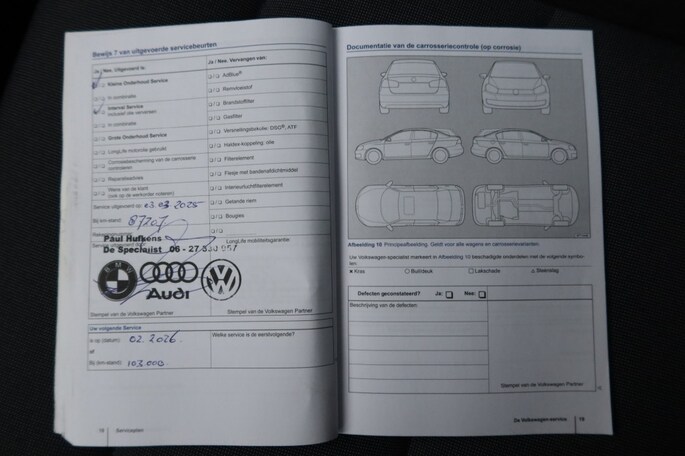 Bewijs 7 van uitgevoerde servicebeurten
Ja / Nee, Uitgevoerd is:
Kleine Onderhoud Service
In combinatie
Interval Service
inclusief olie verversen
In combinatie
Grote Onderhoud Service
LongLife motorolie gebruikt
Corrosiebescherming van de carrosserie
controleren
Reparatieadvies
Wens van de klant
(ook op de werkorder noteren)
Service uitgevoerd op:
03.03.2025
Bij km-stand:
87207
Ja / Nee, Vervangen van:
AdBlue®
Remvloeistof
Brandstoffilter
Gasfilter
Versnellingsbakolie: DSG®, ATF
Haldex-koppeling: olie
Filterelement
Flesje met bandenafdichtmiddel
Interieurluchtfilterelement
Getande riem
Bougies
LongLife mobiliteitsgarantie:
Paul Hufkens
De Specialist 06 - 27
BMW
Audi
Stempel van de Volkswagen Partner
Stempel van de Volkswagen Partner
Uw volgende Service
Is op (datum):
02.2026.
of
Bij (km-stand):
103.000.
Welke service is de eerstvolgende?
18
Serviceplan
Documentatie van de carrosseriecontrole (op corrosie)
Afbeelding 10 Principeafbeelding. Geldt voor alle wagens en carrosserievarianten.
Uw Volkswagen-specialist markeert in Afbeelding 10 beschadigde onderdelen met de volgende symbo-
len.
Kras
Buil/deuk
Lakschade
Steenslag
Defecten geconstateerd? Ja: Nee:
Beschrijving van de defecten:
Stempel van de Volkswagen Partner
De Volkswagen-service
19